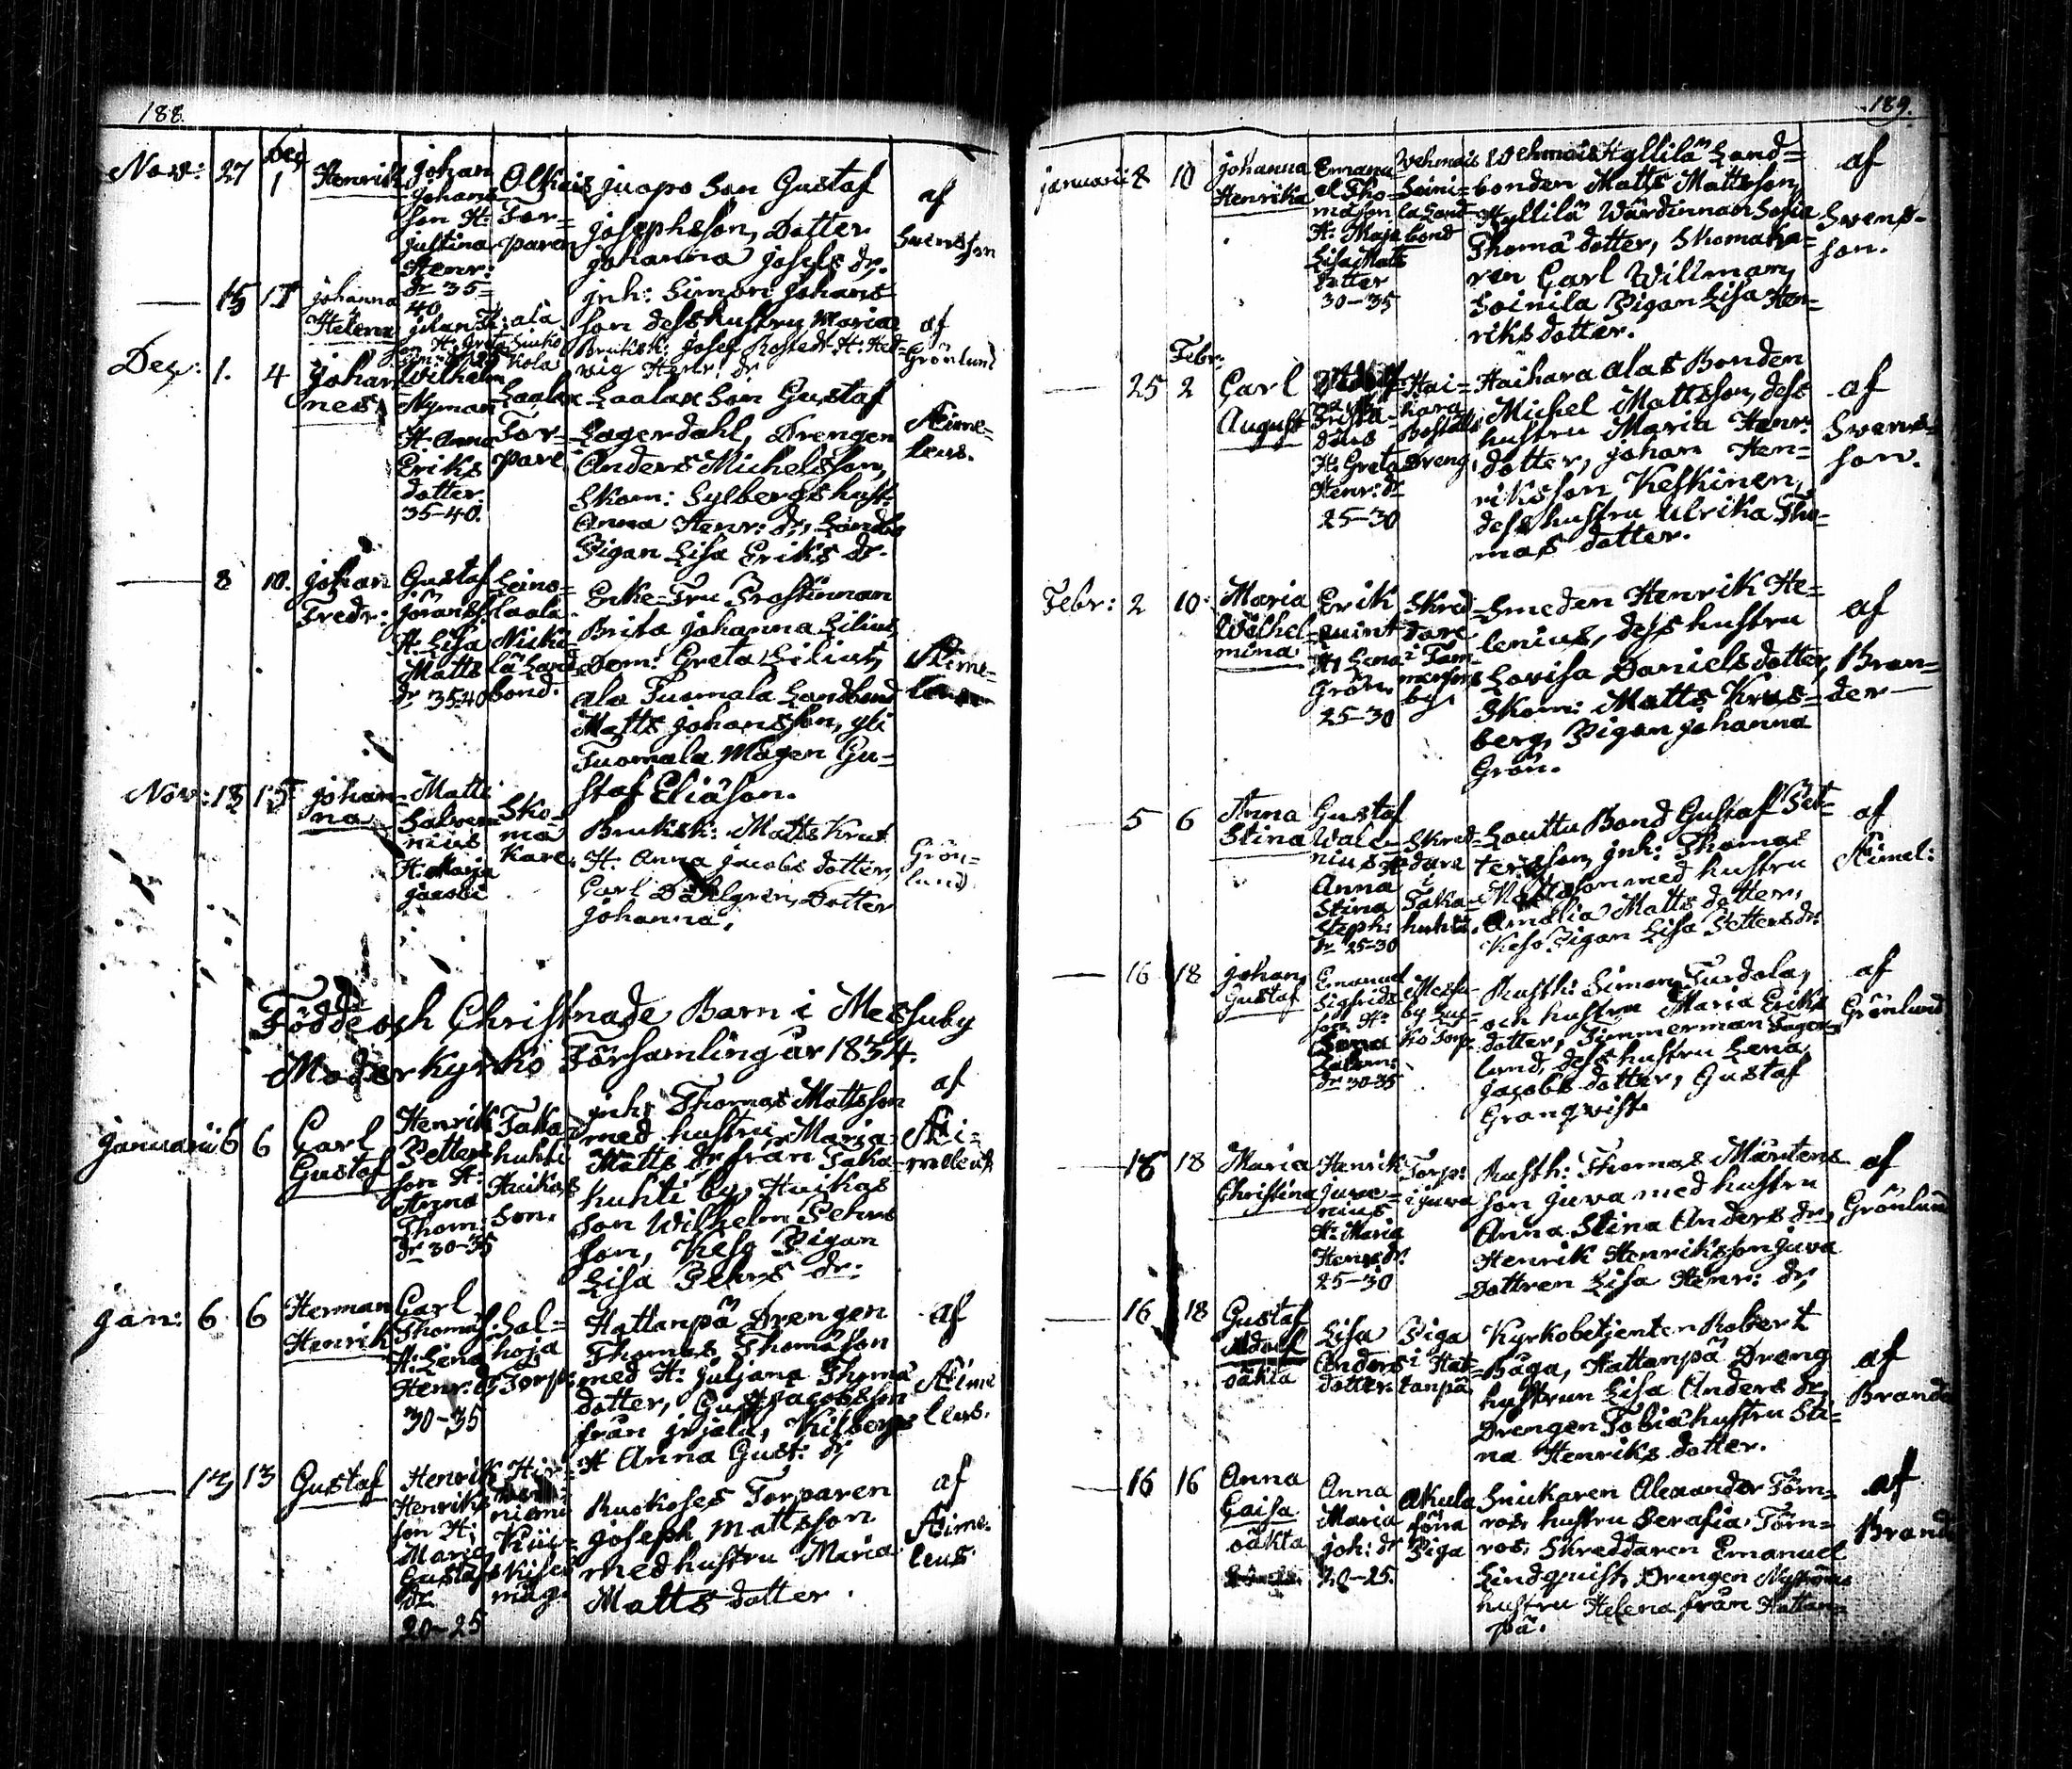 188.
Nov: 27 Dec 1 Henrik
Johan
Johans
son H:
Justina
Henr:
dr 35-
40
Olkais
Tor=
paren
Juopo Son Gustaf
Josephsson, Dotter
Johanna Josefs dr.
Inh: Simon Johans
son dess hustru Maria
af
Svensson
— 15 17 Johanna
Helena
Johan
ala
Kola
Bruksk: Josef
vig Henr: dr
af
Grönlund
Dec: 1. 4 Johan
nes
Wilhelm
Nyman
H. Anna
Eriks
dotter.
35-40.
Laalax
Tor=
pare
Laalax Son Gustaf
Lagerdahl, Drengen
Anders Michelsson,
Skom: Sylbergs hust.
Anna Henr: dr,
Pigan Lisa Eriks dr.
Aime=
leus.
— 8 10. Johan
Fredr:
Gustaf
Jöranss.
H. Lisa
Matts
dr 35-40
Leino=
laala
Nicki=
lä Land
bond.
Enke-Fru Prostinnan
Brita Johanna Lilius,
Dem: Greta Lilius,
ala Tuomala Landbond
Matts Johansson, yli
Tuomala Mågen Gu=
staf Eliäson.
Aime=
Nov: 13 15 Johan=
na
Matts
Salven
nius
H. Maja
Jacobs
Sko=
ma
kare.
Bruksk: Matts Krut
H. Anna Jacobs dotter,
Carl Dahlgren, Dotter
Johanna.
Grön=
lund.
Födde och Christnade Barn i Messuby
Moderkyrko Församling år 1834.
Januarii 6 6 Carl
Gustaf
Henrik
Petters
son H:
Anna
Thom:
dr 30-35
Taka
huhti
Huikas
Son.
Inh: Thomas Mattsson
med hustru Maria
Matts dr från Taka=
huhti by, Huikas
Son Wilhelm Pehrs
son, Keso Pigan
Lisa Pehrs dr:
af
Ai=
meleus
Jan: 6 6 Herman
Henrik
Carl
Thomas
H: Lena
Henr: dr
30-35
Hal=
hoja
Torp:
Hattanpä Drengen
Thomas Thomasson
med H: Juljana Thoma
dotter, Gust Jacobsson
från
H Anna Gust: dr
af
Aime
leus.
— 13 13 Gustaf
Henrik
Henriks
son H:
Maria
Gustafs
dr
20-25
niemi
måg.
Ruokoses Torparen
Joseph Mattsson
med hustru Maria
Matts dotter.
af
Aime.
leus.
189.
Januarii 8 10 Johanna
Henrika
Emanu
el Tho=
masson
H: Maja
Lisa Matts
dotter
30-35
Wehmais
Soini=
la Land=
bond
Wehmais Hyllilä Land=
bonden Matts Mattsson,
Hyllilä Wärdinnan Sofia
Thoma dotter, Skomaka=
ren Carl Willman,
Soinila Pigan Lisa Hen=
riks dotter.
af
Svens=
son.
— 25 Febr: 2 Carl
August
H: Greta
Henr: dr
25-30
Hai=
hara
Dreng.
Haihara alas Bonden
Michel Mattsson, dess
hustru Maria Henr:
dotter, Johan Hen=
riksson Keskinen,
dess hustru Ulrika Tho=
mas dotter.
af
Svens=
son.
Febr: 2 10 Maria
Wilhel=
mina
Erik
quint
H. Lena
Grön.
25-30
Skred
dare
i Tam=
merfors
by.
Smeden Henrik He=
lenius, dess hustru
Lovisa Daniels dotter,
Skom: Matts Krus=
berg, Pigan Johanna
Grön.
af
Bran=
der—
— 5 6 Anna
Stina
Gustaf
Wale=
nius H
Anna
Stina
Steph:
dr 25-30
Skred=
dare
i
Taka=
huhti.
Louttu Bond Gustaf Pet=
tersson, Inh: Thomas
Mattsson med hustru
Amalia Matts dotter,
Keso Pigan Lisa Petters dr.
af
Aimel:
— 16 18 Johan
Gustaf
Emanuel
Sigfrids
son H:
Lena
Salom:
dr 30-35
Messu=
by
Torp.
Rusth: Simon Turdola,
och hustru Maria Eriks
dotter, Timmerman Fager=
lund, dess hustru Lena
Jacobs dotter, Gustaf
Granqvist.
af
Grönlund
— 18 18 Maria
Christina
Henrik
Juve=
nius
H: Maria
Henr: dr
25-30
Torp:
i Juva
Rusth: Thomas Mårtens
son Juva med hustru
Anna Stina Anders dr,
Henrik Henriksson Juva
dottren Lisa Henr: dr,
af
Grönlund
— 16 18 Gustaf
Adolf
oäkta
Lisa
Anders
dotter
Piga
i Hat=
tanpä
Kyrkobetjenten Robert
Båga, Hattanpä Dreng
hustrun Lisa Anders dr,
Drengen Tobias hustru Sti=
na Henriks dotter.
af
Brande
— 16 16 Anna
Caisa
oäkta
Anna
Maria
Joh: dr
20-25.
Akula
Piga
Snickaren Alexander Törn=
ros, hustru Serafia Törn=
ros, Skreddaren Emanuel
Lindquist, Drengen Nyströms
hustru Helena från Hattan=
pä.
af
Brande